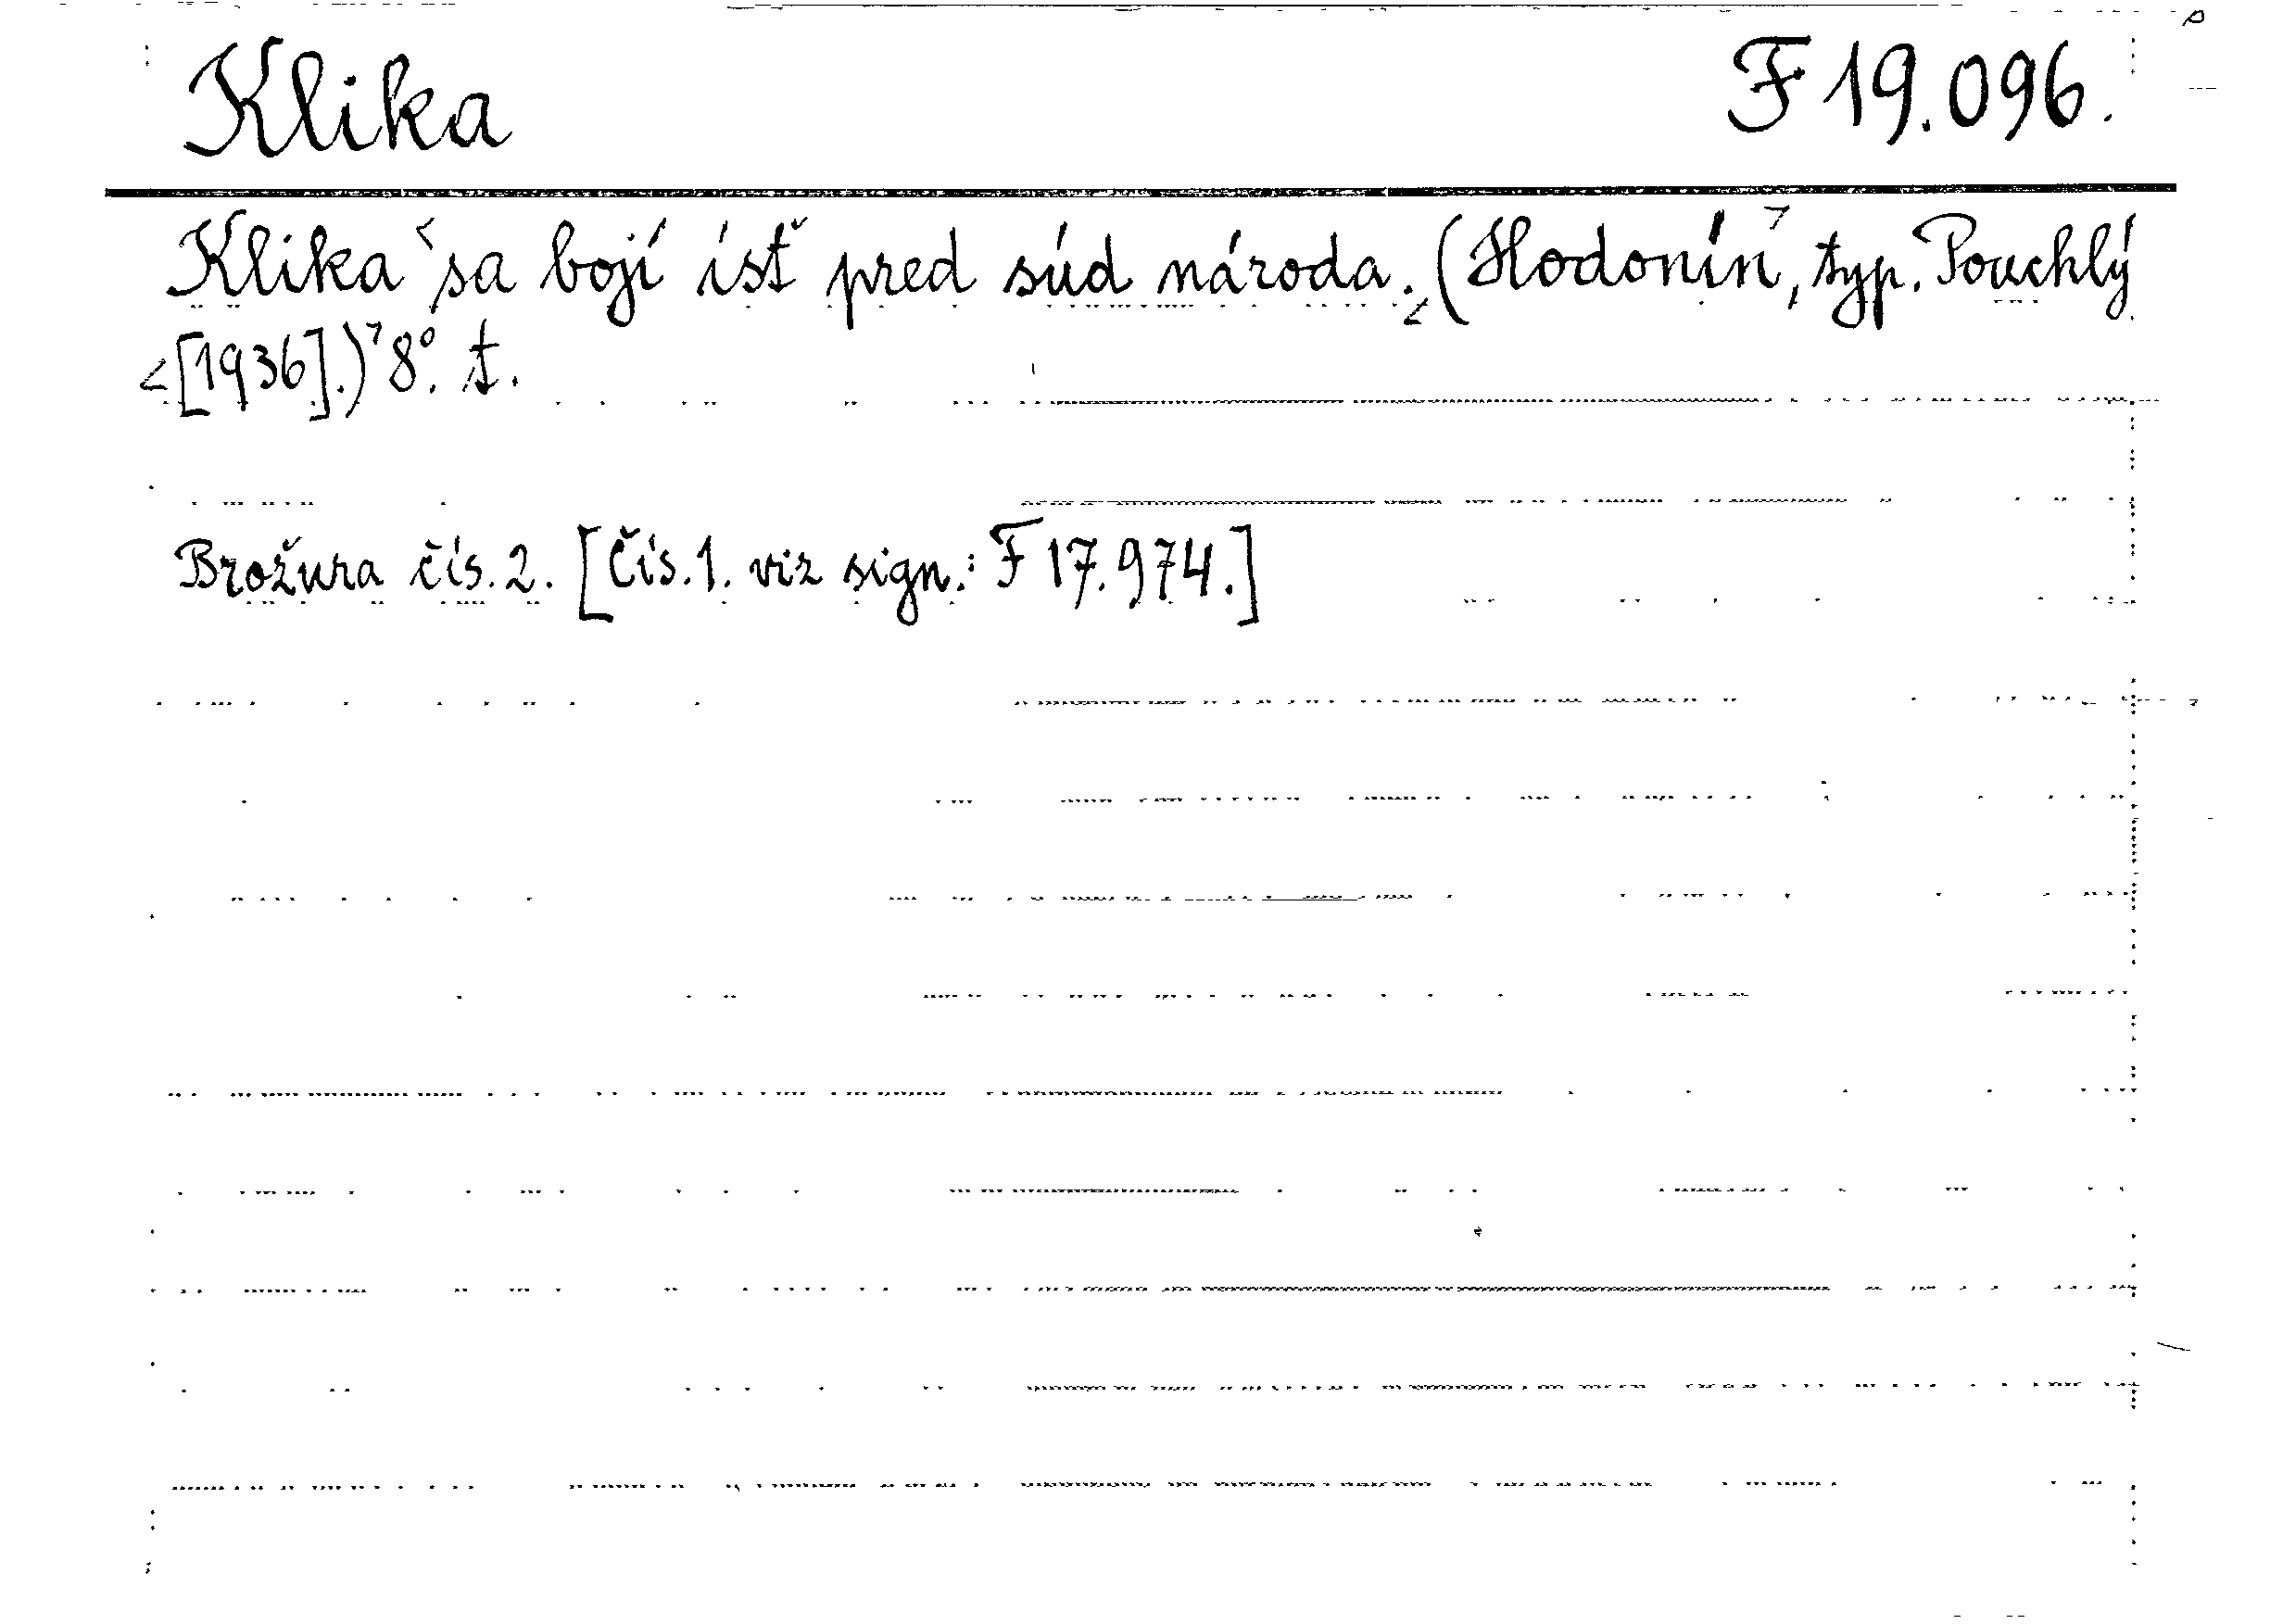 Klika F 19.096.
Klika sa bojí ísť pred súd národa. (Hodonín, typ. Pouchlý
[1936].) 8°. t.
Brožura čís. 2. [Čís. 1. viz sign.: F 17.974.]